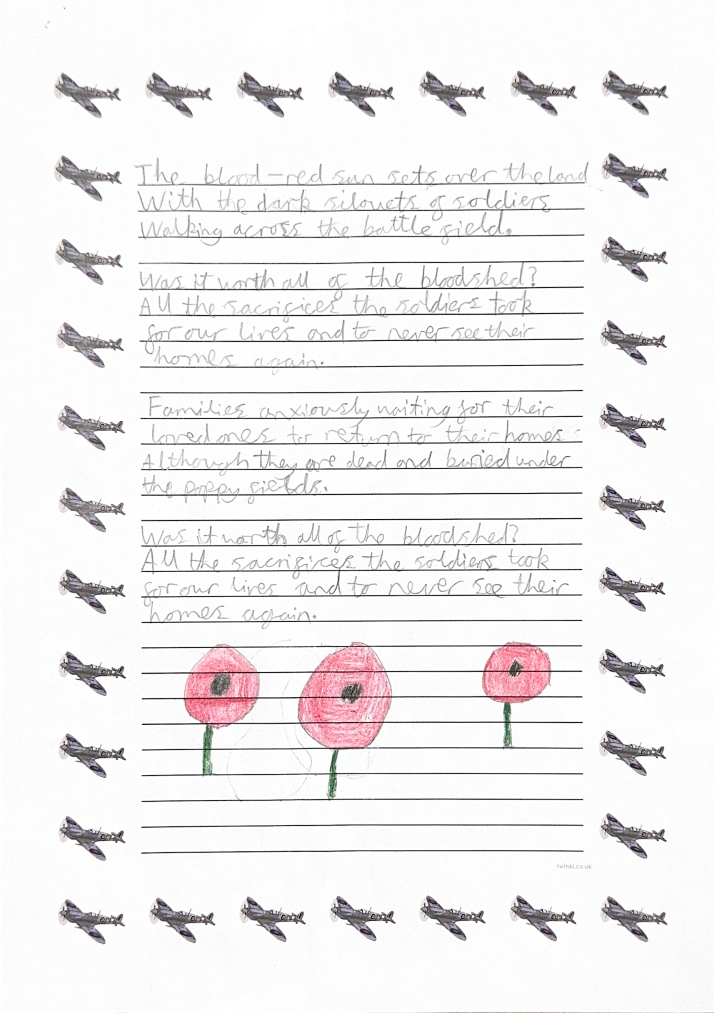 The blood-red sun sets over the land
With the dark silouets of soldiers
Walking across the battle field.
Was it worth all of the bloodshed?
All the sacrifices the soldiers took
for our lives and to never see their
homes again.
Families anxiously waiting for their
loved ones to return to their homes.
Although they are dead and buried under
the poppy fields.
Was it worth all of the bloodshed?
All the sacrifices the soldiers took
for our lives and to never see their
homes again.
twinkl.co.uk